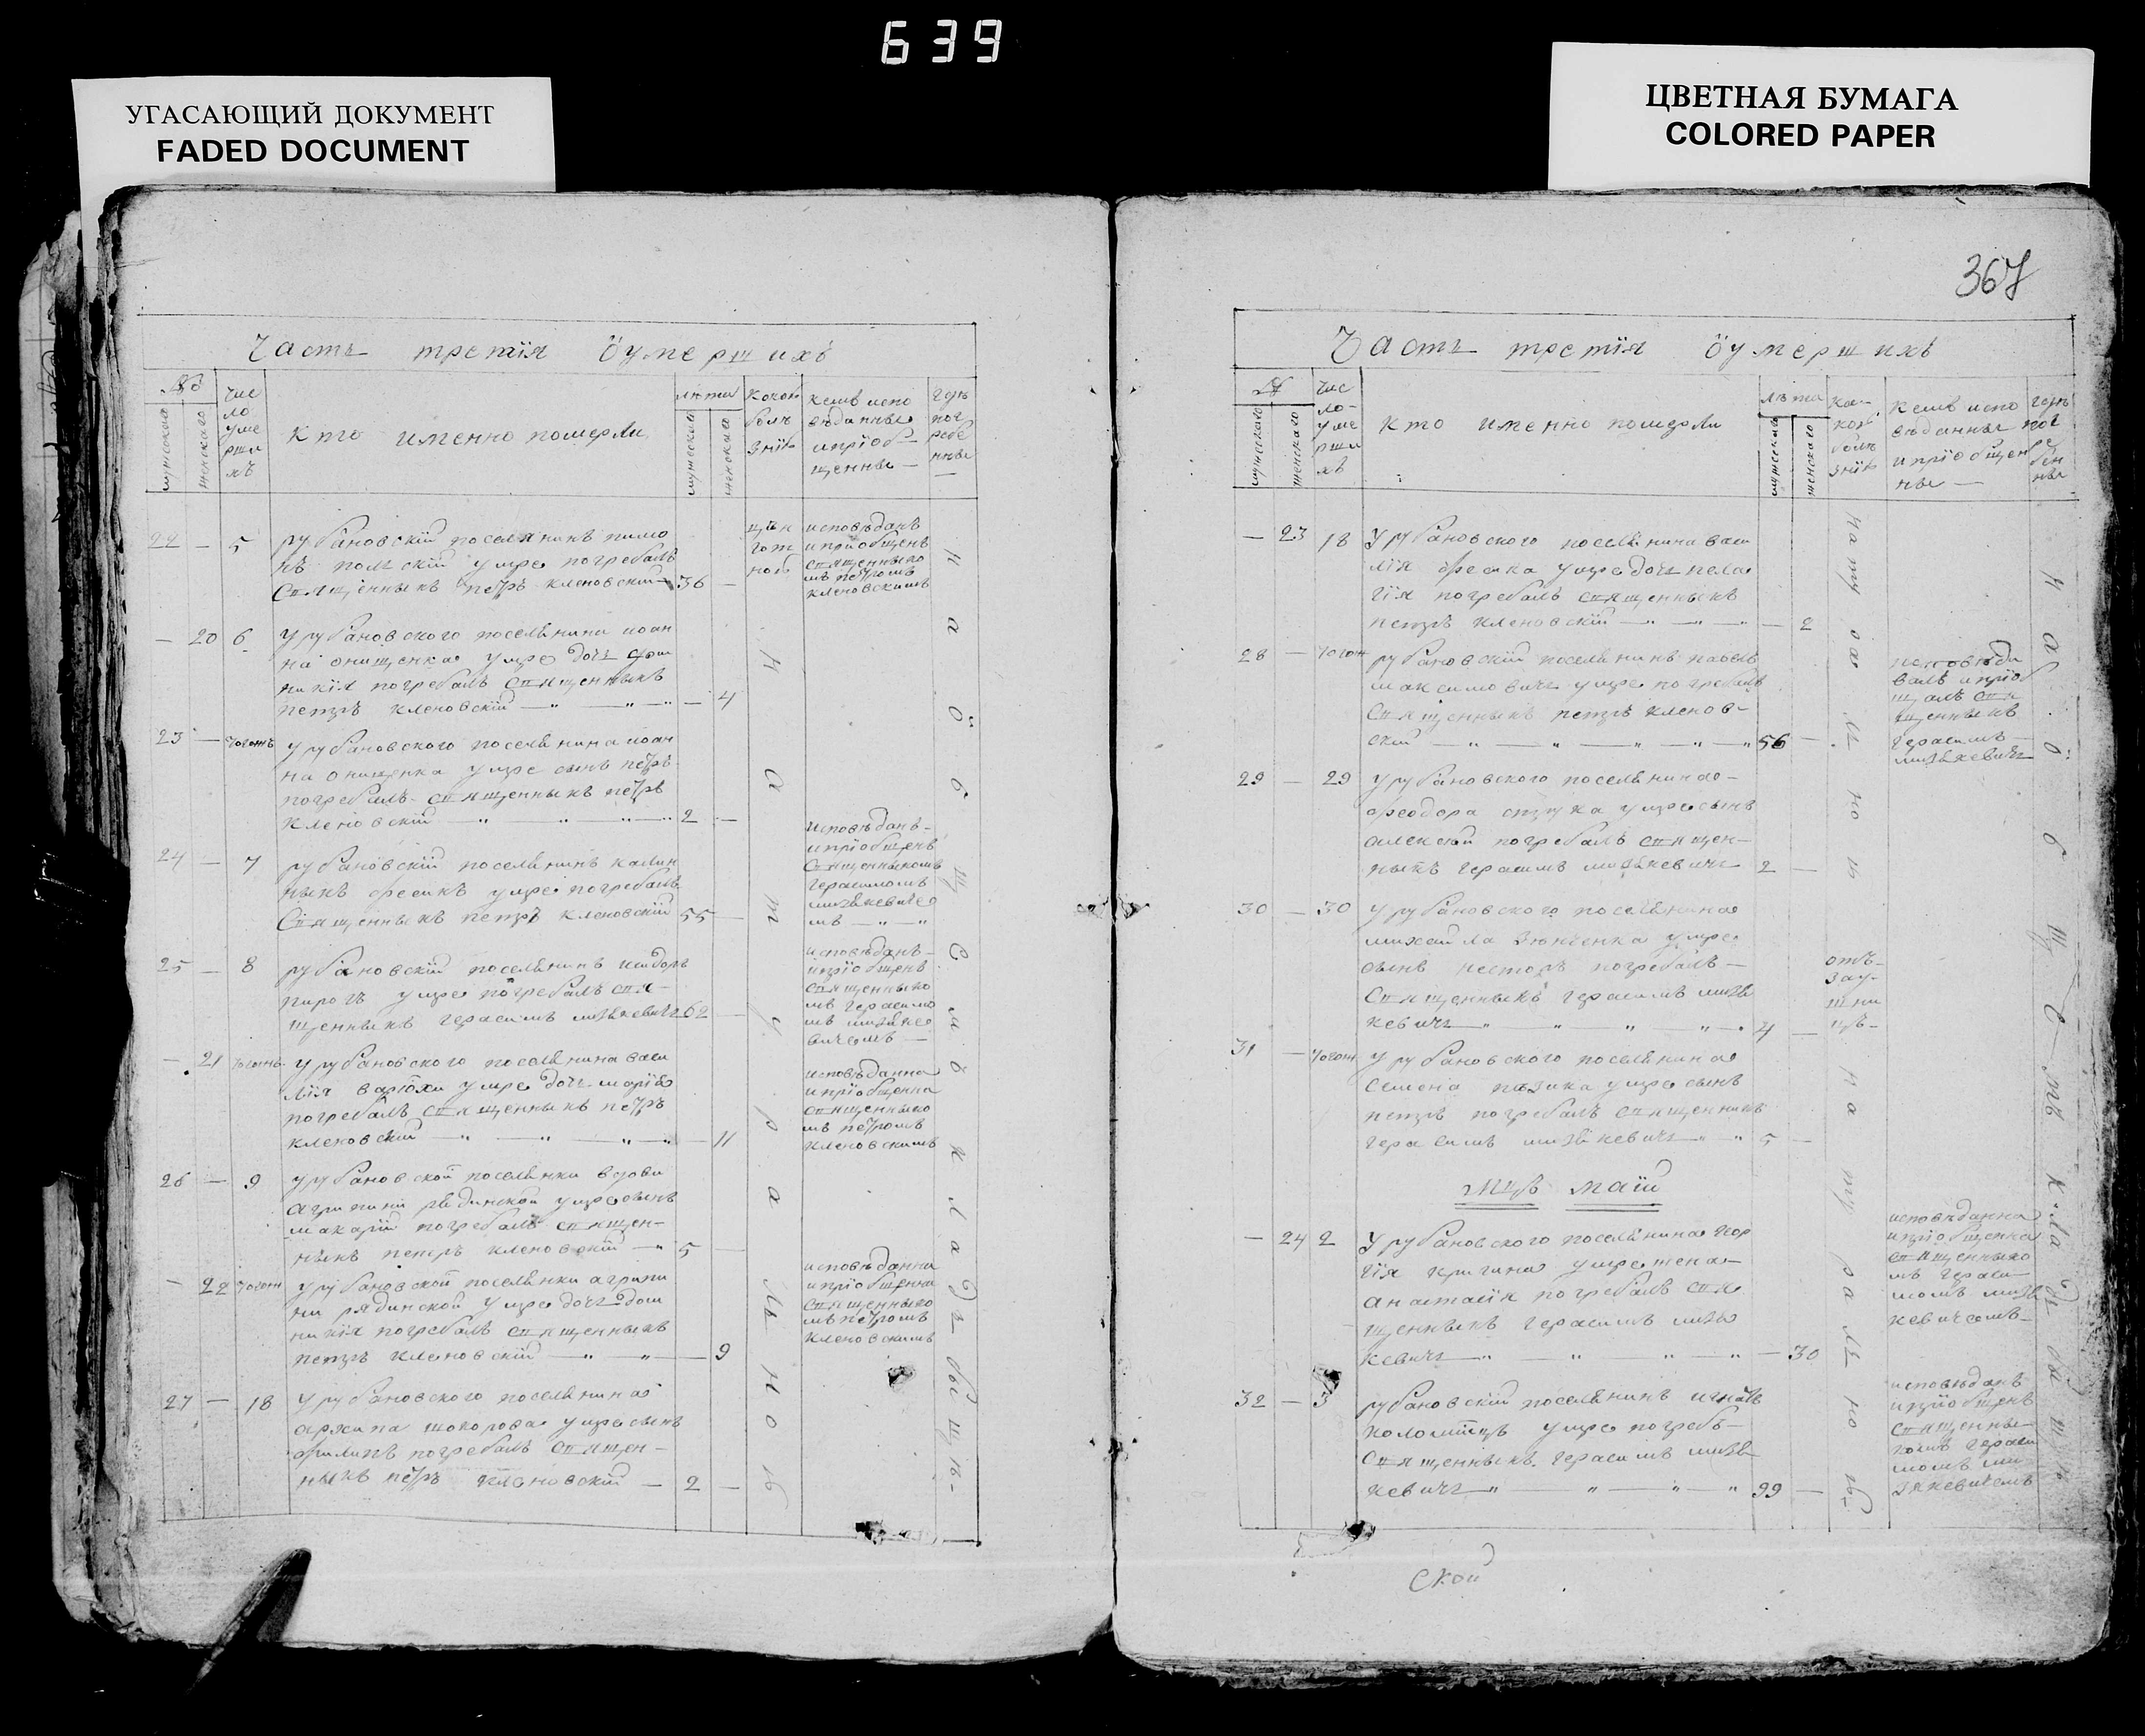 639
УГАСАЮЩИЙ ДОКУМЕНТ
FADED DOCUMENT
ЦВЕТНАЯ БУМАГА
COLORED PAPER
Часть третїя оумершихъ
№
мужеского
женского
чис
ло
уме
рши
хъ
кто именно померли
лѣта
мужеского
женского
какою
болѣ
знїю
кемъ испо
вѣданны
и прїоб-
щенны —
гдѣ
пог
ребе
нны
—
22 — 5
рубановскїй поселянинъ пимо
нъ полскїй умре погребалъ
священныкъ петръ кленовскїй 36 —
исповѣданъ
и прїобщенъ
священныко
мъ петромъ
кленовскимъ
— 20 6
У рубановского поселянина иоан
на онищенка умре дочъ
погребалъ священныкъ
петръ кленовскїй — „ — „ — „ — 4
23 — тогожъ
у рубановского поселянина иоан
на онищенка умре сынъ петръ
погребалъ священныкъ петръ
кленовскїй — „ „ „ 2 —
24 — 7
рубановскїй поселянинъ калин
ныкъ фесикъ умре погребалъ
священныкъ петръ кленовскїй 55 —
исповѣданъ
и прїобщенъ
священныкомъ
герасимомъ
мизѣкевиче
мъ — „ — „
25 — 8
рубановскїй поселянинъ исидоръ
пирогъ умре погребалъ свя-
щенныкъ герасимъ мизѣкевичъ 62 —
исповѣданъ
и прїобщенъ
священныко
мъ герасимо
мъ мизѣке
вичемъ —
— 21 тогожъ
У рубановского поселянина васи
лїя умре дочъ марїя
погребалъ священныкъ петръ
кленовскїй „ — „ — „ — „ — 11
исповѣданна
и прїобщенна
священныко
мъ петромъ
кленовскимъ
26 — 9
У рубановской поселянки вдови
агрипини рядинской умре сынъ
макарїй погребалъ священ-
ныкъ петръ кленовскїй — „ 5 —
— 22 тогожъ
У рубановской поселянки агрипи
ни рядинской умре дочъ дом
никїя погребалъ священныкъ
петръ кленовскїй — „ — „ — 9
исповѣданна
и прїобщенна
священныко
мъ петромъ
кленовскимъ
27 — 18
У рубановского поселянина
архипа умре сынъ
филипъ погребалъ священ-
ныкъ петръ кленовскїй — 2 —
натурално
на общемъ кладъбыщѣ
367
Часть третїя оумершихъ
№
мужеского
женского
чис
ло-
уме
рши
хъ
кто именно померли
лѣта
мужеского
женского
ка-
кою
болѣ
знїю
кемъ испо
вѣданны
и прїобщен
ны —
гдѣ
пог
ре
бен
ны
— 23 18
У рубановского поселянина васи
лїя фесика умре дочъ пела
гїя погребалъ священныкъ
петръ кленовскїй — „ — „ — „ — 2
28 — тогож
рубановскїй поселянинъ павелъ
максимовичъ умре погребалъ
священныкъ петръ кленов-
скїй — „ — „ — „ — „ — „ 56 —
исповѣди
валъ и прїоб
щалъ свя
щенныкъ
герасимъ
мизѣкевичъ
29 — 29
У рубановского поселянина
феодора умре сынъ
алексїй погребалъ священ-
ныкъ герасимъ мизѣкевичъ 2 —
30 — 30
У рубановского поселянина
михаила зѣнченка умре
сынъ несторъ погребалъ —
священныкъ герасимъ мизѣ
кевичъ „ „ „ „ 4 —
отъ
зау-
шни
цѣ-
31 — тогож
У рубановского поселянина
семена умре сынъ
петръ погребалъ священныкъ
герасимъ мизѣкевичъ — „ „ 5 —
мцъ маїй
— 24 2
У рубановского поселянина геор
гїя умре жена
анастасїя погребалъ свя
щенныкъ герасимъ мизѣ
кевичъ — „ „ „ — „ — 30
исповѣданна
и прїобщенна
священныко
мъ гераси
момъ мизѣ
кевичемъ
32 — 3
рубановскїй поселянинъ игнатъ
умре погребъ-
священныкъ герасимъ мизѣ
кевичъ — „ „ — „ — „ 99 —
исповѣданъ
и прїобщенъ
священны-
комъ гераси
момъ ми
зѣкевичемъ
натурално
натурално
на общемъ кладъбыщѣ
ской